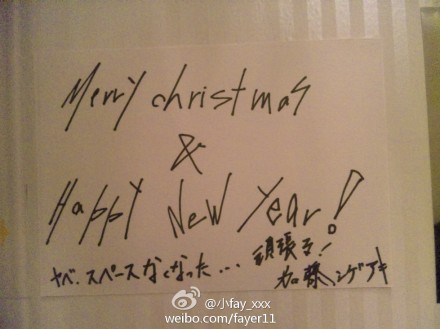 Merry christmas
&
Happy New Year!
ヤベ、スペースなくなった… 頑張る!
加藤シゲアキ
@小fay_xxx
weibo.com/fayer11